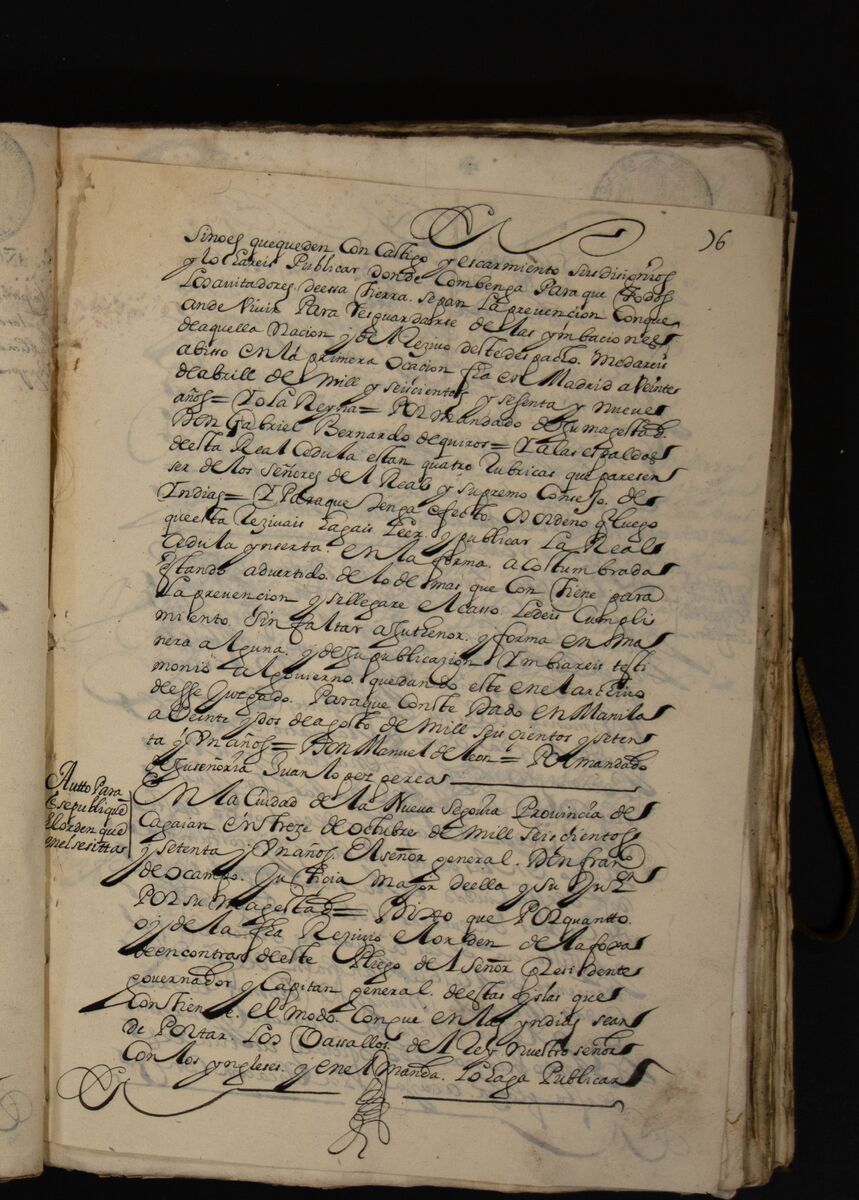 76
sinoes quequeden Con Castigo y escarmiento Sus disignios
y lo hareis Publicar donde Combenga Para que Todos
Los auitadores de essa Tierra. Sepan La prevencion Conque
ande Viuir Para Resguardarse de las ymbaciones
de aquella Nacion y del Reziuo deste despacho. Medareis
abisso en la primera ocacion fha en Madrid a Veinte
de abrill de Mill y seiscientos y sesenta y nueve
años = Yo la Reyna = Por Mandado de su magestad
Don Gabriel Bernardo de quiros = Y a las espaldas
de esta Real Cedula estan quatro Rubricas que paresen
ser de los Señores del Real y Supremo Consejo de
Yndias = Y Para que tenga efecto. Os ordeno q luego
que esta Reziuais hagais Leer y publicar La Real
Cedula ynserta. en la forma. acostumbrada
estando advertido. de lo demas que Contiene para
La prevencion y si llegare el casso. Le deis Cumpli
miento. Sin faltar a su thenor. y forma en ma
nera alguna. y de su publicazion Ymbiareis testi
monio al govierno. quedando este en el archivo
de esse Juzgado. Para que Conste Dado en Manila
a Veinte y dos de agosto de Mill seiscientos y seten
ta y Vn años = Don Manuel de leon = Por mandado
de su señoria Juan lopez perea
Autto Para
q se publique
el orden que
en el se sitta
En la Ciudad de la Nueva Segovia Provincia de
Cagaian en treze de octubre de Mill seiscientos
y setenta y Vn años. El señor general. Don franco
de ocampo. Justicia Mayor de ella y su Jur.on
Por su Magestad = Dixo que Por quantto.
oy de la fha Reziuio el orden de la foxa
de encontras de este Pliego del Señor Presidente
governador y Capitan general. de estas yslas que
Contiene. el modo. Conque en las yndias sean
de Portar. Los Vassallos. del Rey Nuestro señor
Con los yngleses. y en el manda. Lo haga Publicar